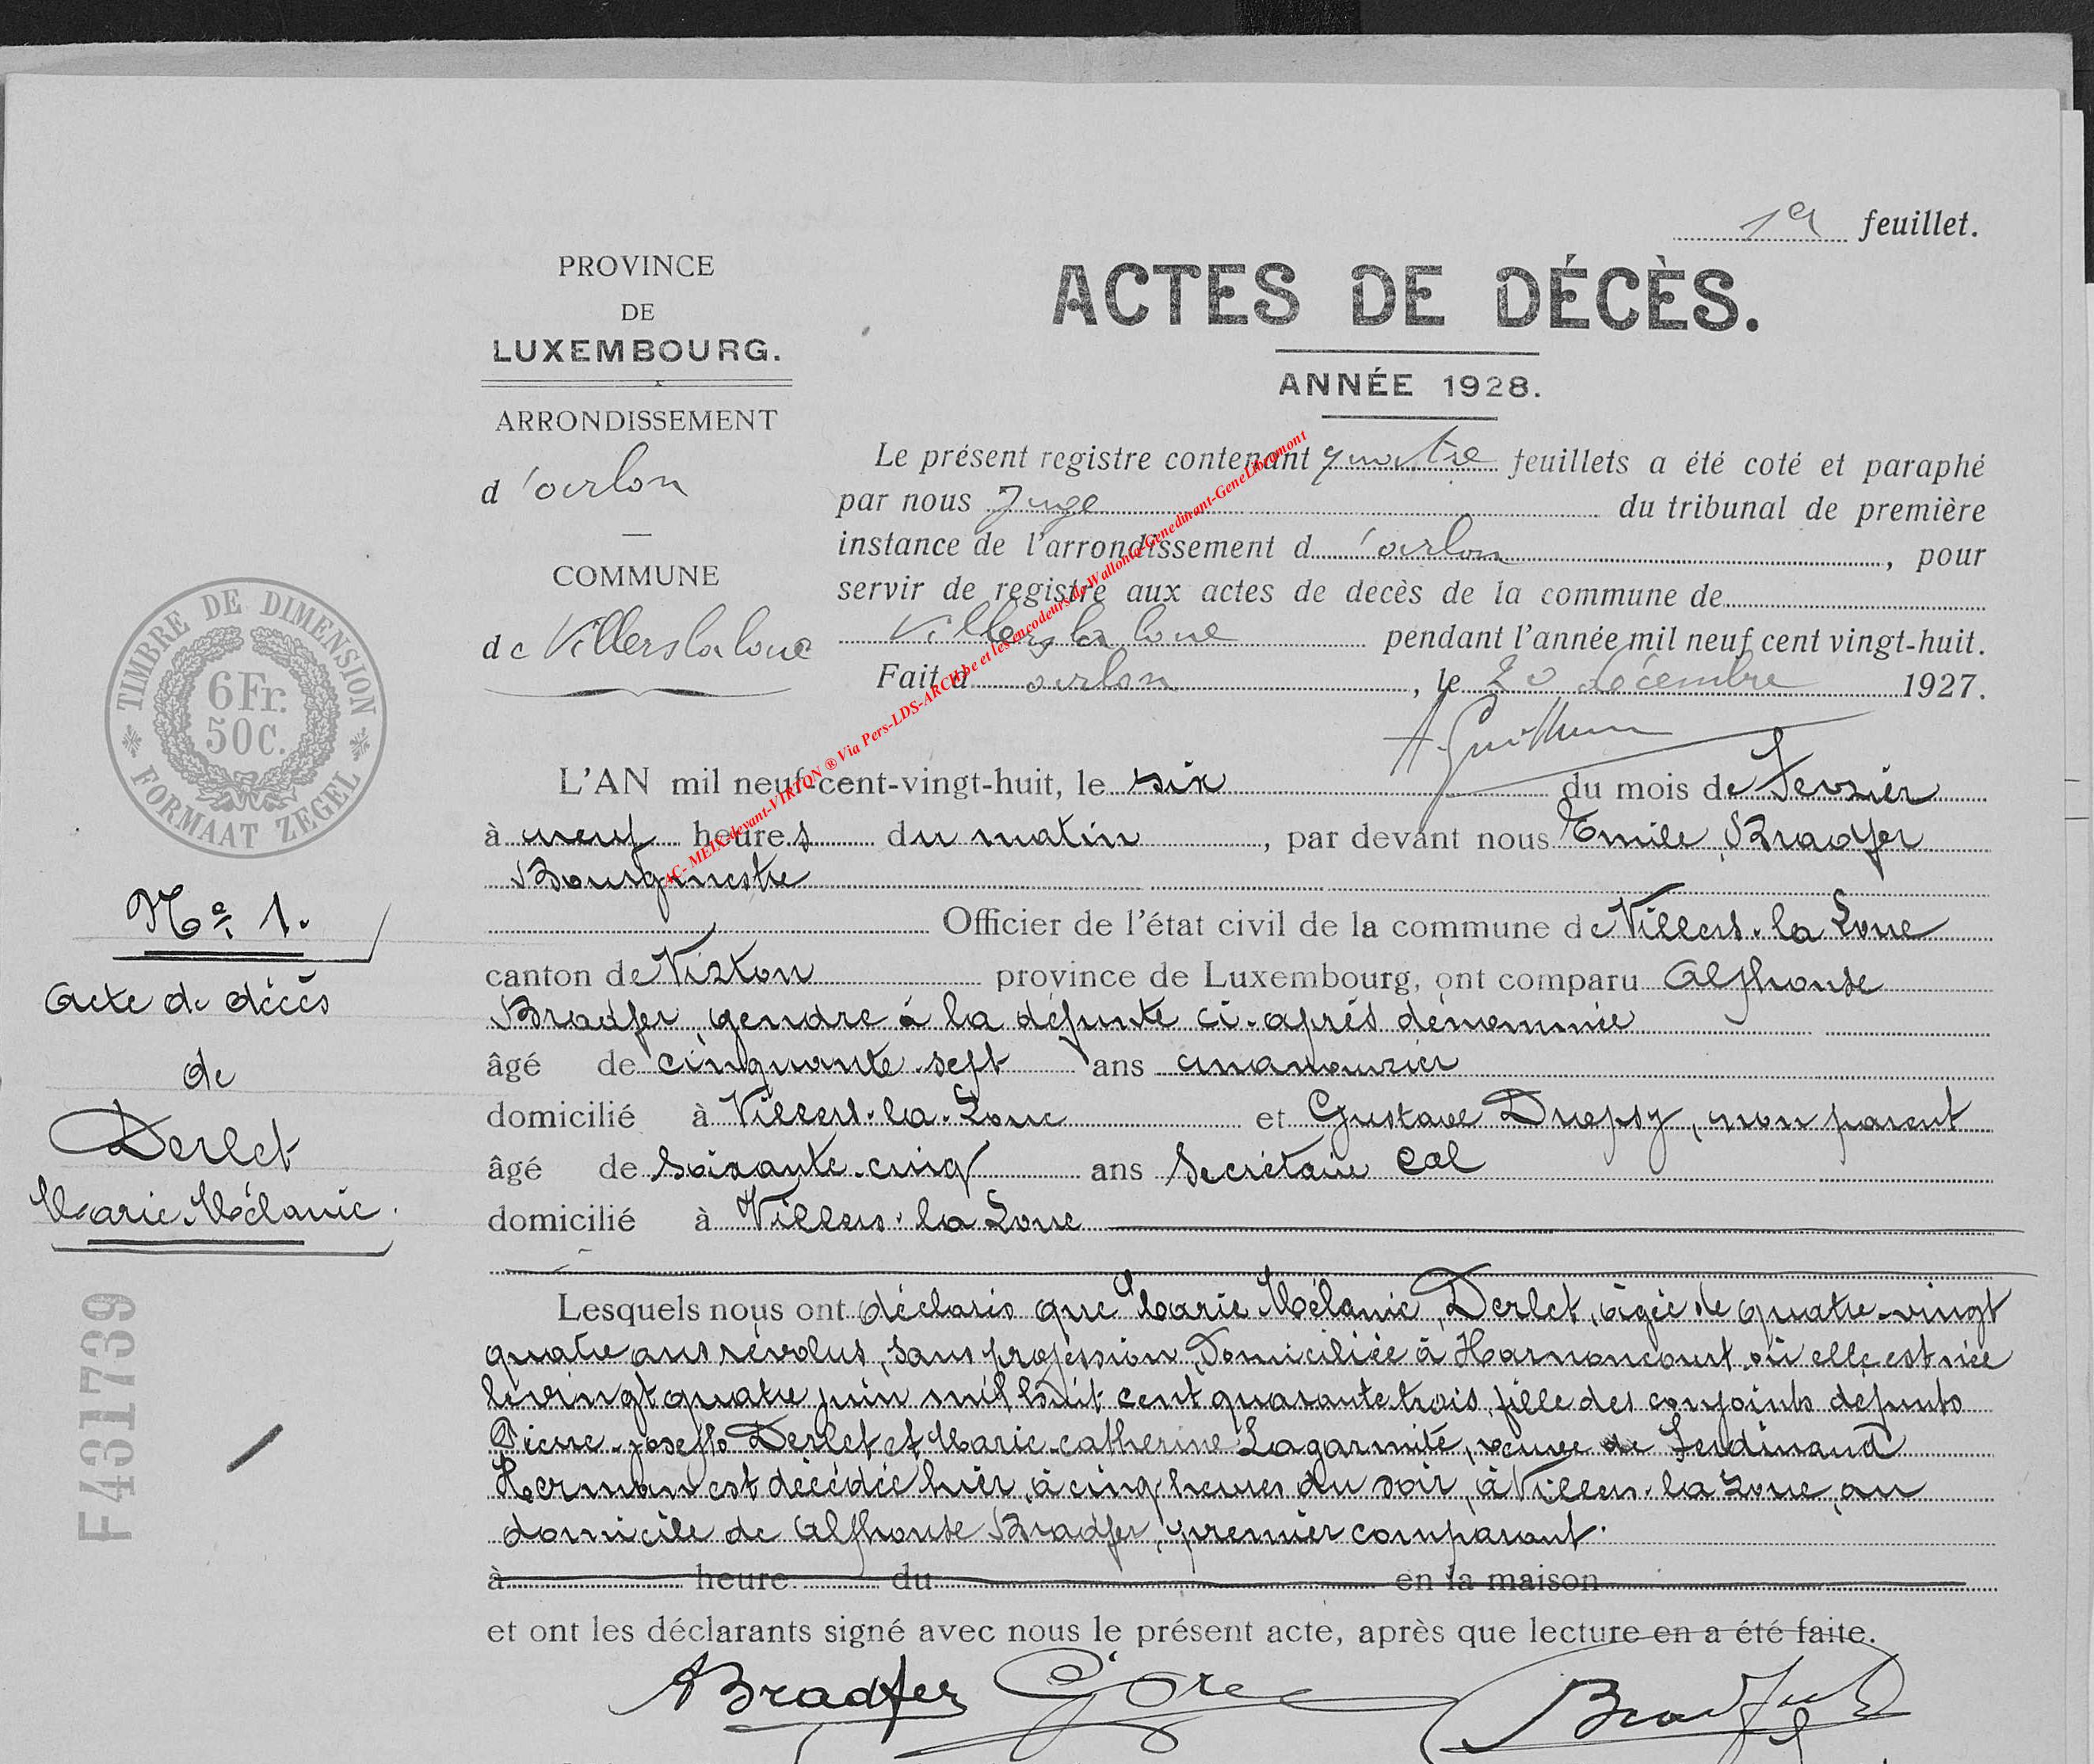 1er feuillet.
PROVINCE
DE
LUXEMBOURG.
ARRONDISSEMENT
d'arlon
COMMUNE
de Villers la loue
ACTES DE DÉCÈS.
ANNÉE 1928.
Le présent registre contenant quatre feuillets a été coté et paraphé
par nous Juge du tribunal de première
instance de l'arrondissement d'arlon, pour
servir de registre aux actes de décès de la commune de
Villers la loue pendant l'année mil neuf cent vingt-huit.
Fait à arlon, le 20 décembre 1927.
AC- MEIX-devant-VIRTON ® Via Pers-LDS-ARCH.be et les encodeurs de Wallonia-Genedinant-GeneLibramont
TIMBRE DE DIMENSION
6 Fr.
50 C.
FORMAAT ZEGEL
No 1.
Acte de décès
de
Derlet
Marie-Mélanie.
F431739
L'AN mil neuf-cent-vingt-huit, le six du mois de Fevrier
à neuf heures du matin, par devant nous Emile Bradfer
Bourgmestre
Officier de l'état civil de la commune de Villers-la Loue
canton de Virton province de Luxembourg, ont comparu Alphonse
Bradfer, gendre à la défunte ci-après dénommée
âgé de cinquante-sept ans
domicilié à Villers-la-Loue et Gustave Dropsy, non parent
âgé de soixante-cinq ans secrétaire cal
domicilié à Villers-la Loue
Lesquels nous ont déclaré que Marie Mélanie Derlet, âgée de quatre-vingt
quatre ans révolus, sans profession, Domiciliée à Harnoncourt où elle est née
le vingt quatre juin mil huit cent quarante trois, fille des conjoints défunts
Pierre-joseph Derlet et Marie-catherine Lagarmite, veuve de Ferdinand
Herman est décédée hier, à cinq heures du soir, à Villers-la Loue, au
domicile de Alphonse Bradfer, premier comparant.
à heure du en la maison
et ont les déclarants signé avec nous le présent acte, après que lecture en a été faite.
ABradfer
Bradfer